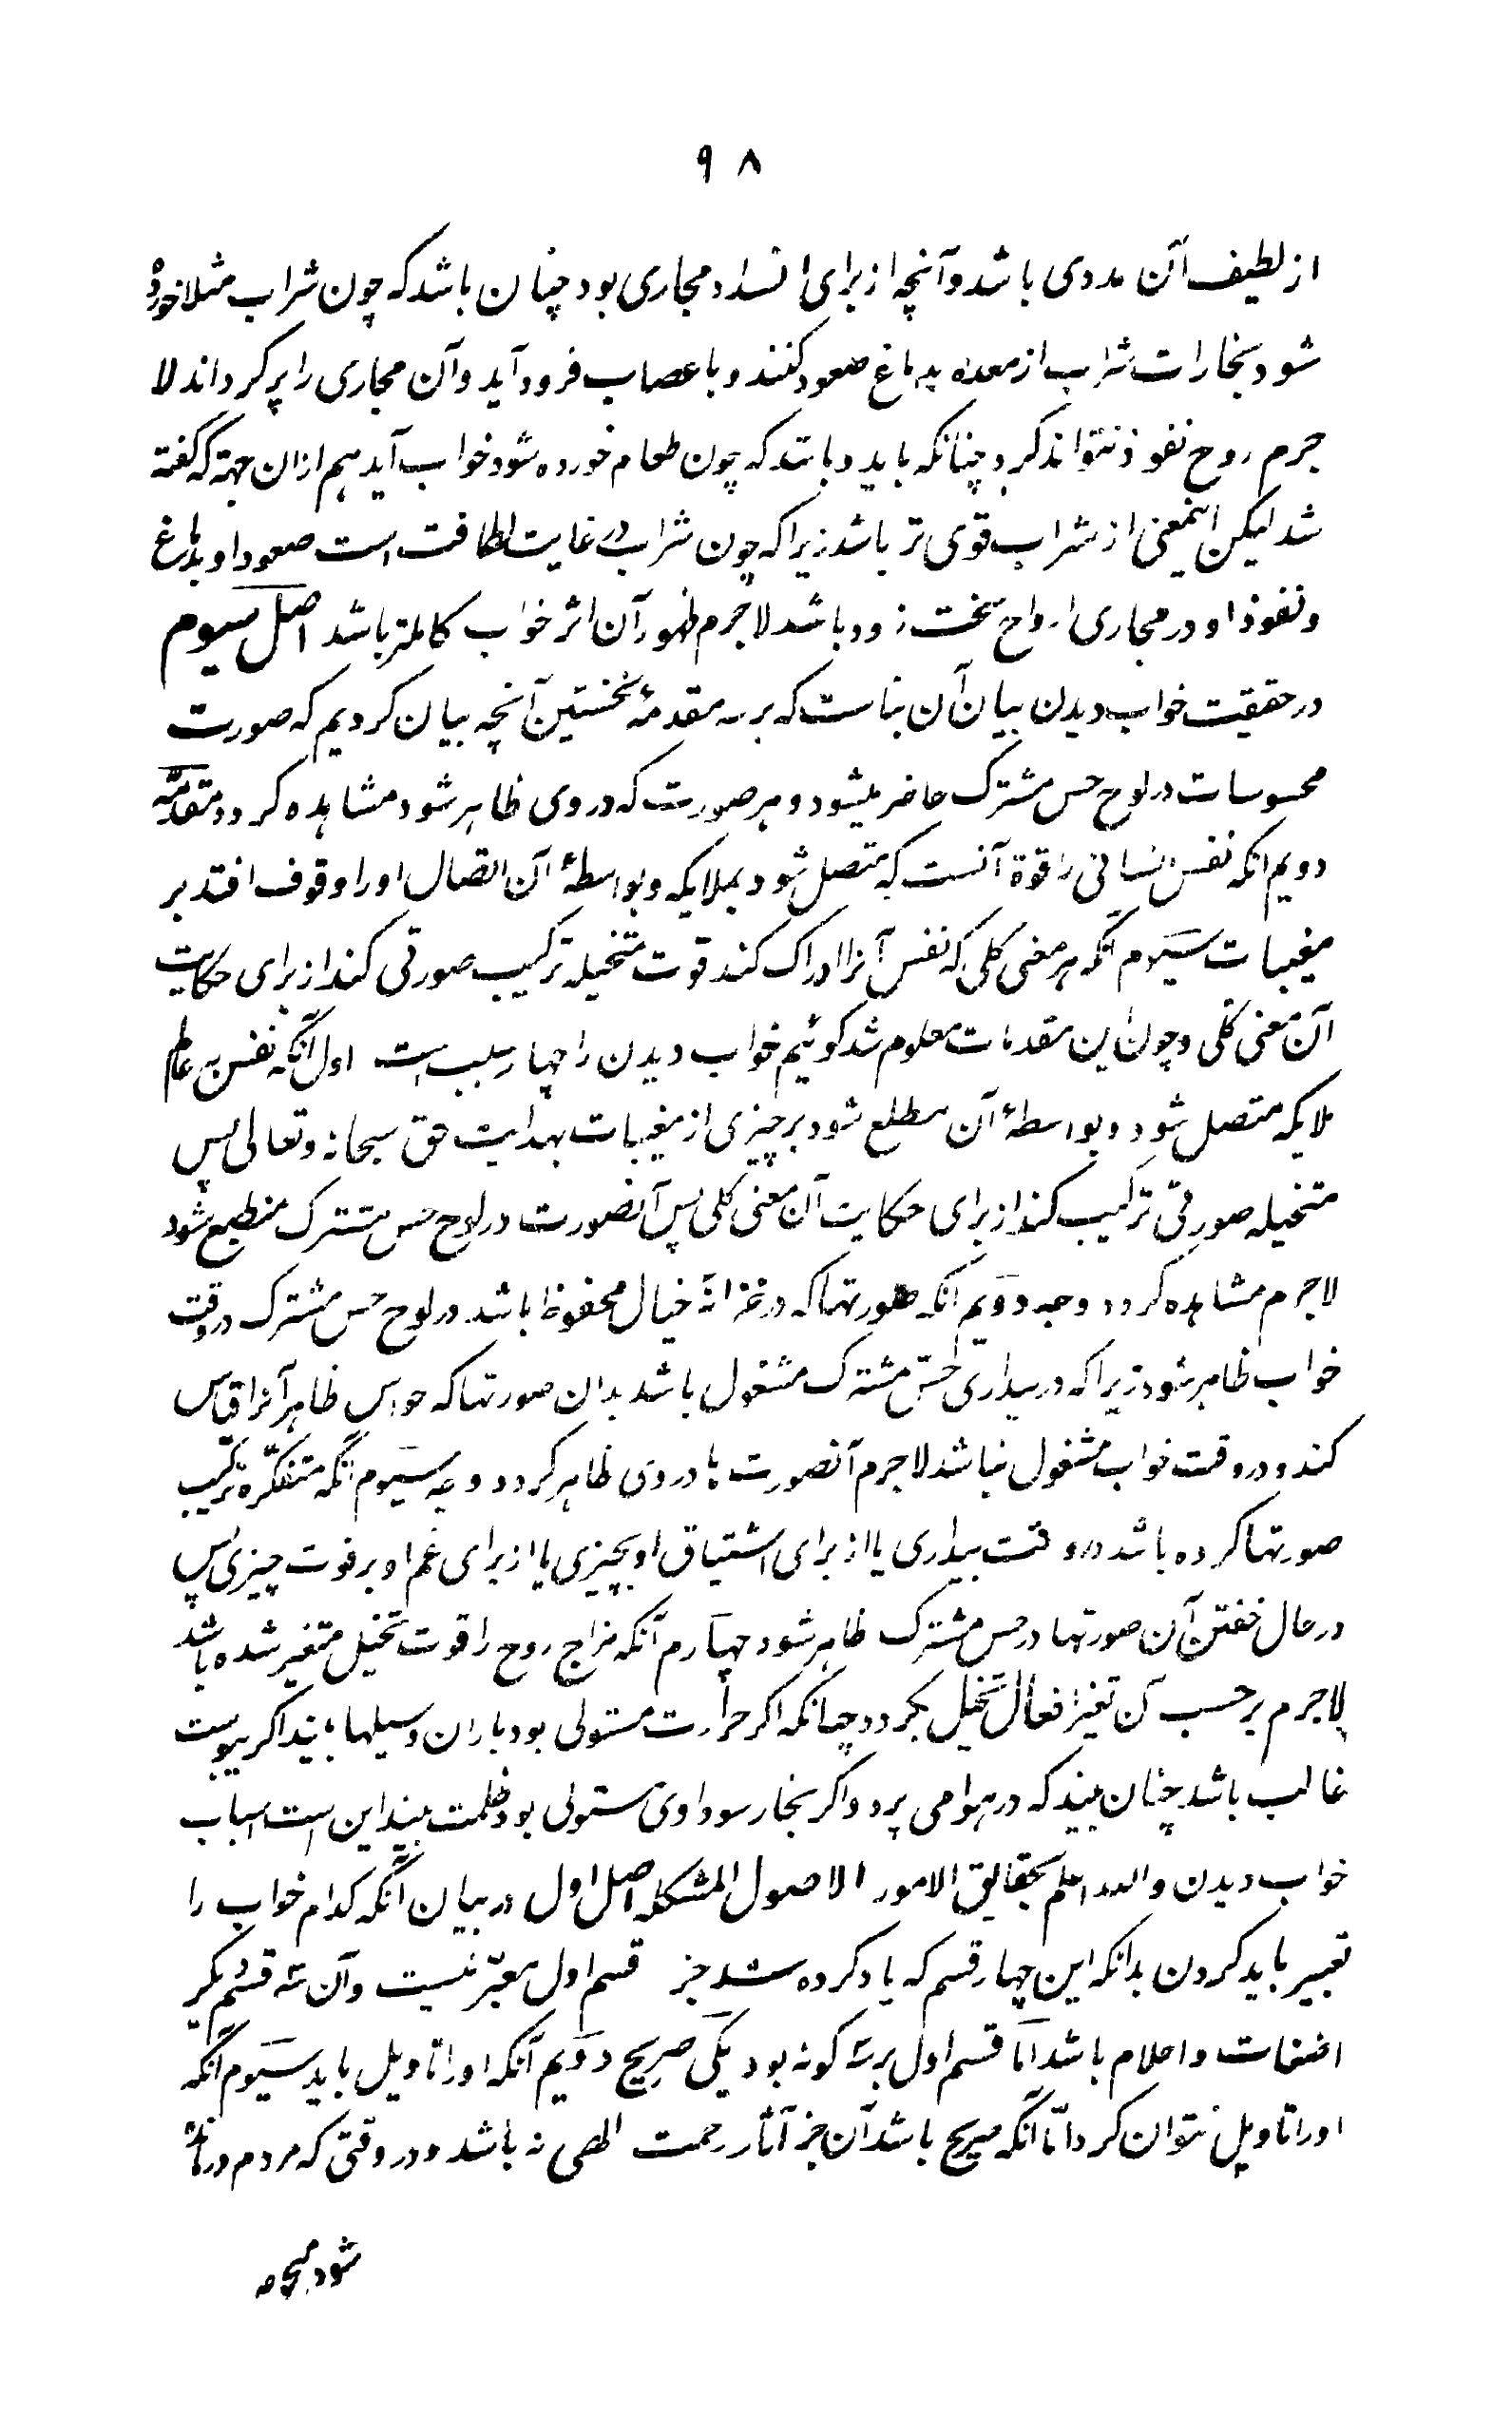 ۹۸
از لطیف آن مددی باشد و آنچه از برای انسداد مجاری بود چنان باشد که چون شراب مثلا خورده
شود بخارات شراب از معده بدماغ صعود کنند و باعصاب فرود آید و آن مجاری را پر کرداند لا
جرم روح نفوذ نتواند کرد چنانکه باید و باشد که چون طعام خورده شود خواب آید هم ازان جهة که گفته
شد لیکن اینمعنی از شراب قوی تر باشد زیرا که چون شراب در غایت لطافت است صعود او بدماغ
و نفوذ او در مجاری ارواح سخت زود باشد لاجرم ظهور آن اثر خواب کاملتر باشد اصل سیوم
در حقیقت خواب دیدن بیان آن بناست که بر سه مقدمهٔ نخستین آنچه بیان کردیم که صورت
محسوسات در لوح حس مشترک حاضر میشود و هر صورت که در وی ظاهر شود مشاهده کردد مقدمه
دویم انکه نفس انسانی را قوة آنست که متصل شود بملایکه و بواسطهٔ آن اتصال او را وقوف افتد بر
مغیبات سیوم انکه هر معنی کلی که نفس آنرا ادراک کند قوت متخیله ترکیب صورتی کند از برای حکایت
آن معنی کلی و چون این مقدمات معلوم شد کوئیم خواب دیدن را چهار سبب است اول آنکه نفس به عالم
ملایکه متصل شود و بواسطهٔ آن مطلع شود بر چیزی از مغیبات بهدایت حق سبحانه و تعالی پس
متخیله صورتی ترکیب کند از برای حکایت آن معنی کلی پس آنصورت در لوح حس مشترک منطبع شود
لاجرم مشاهده کردد وجه دویم انکه صورتها که در خزانهٔ خیال محفوظ باشد در لوح حس مشترک در وقت
خواب ظاهر شود زیرا که در بیداری حس مشترک مشغول باشد بدان صورتها که حواس ظاهر آنرا اقتباس
کند و در وقت خواب مشغول نباشد لاجرم آنصورت ها در وی ظاهر کردد وجه سیوم انکه متفکره ترکیب
صورتها کرده باشد در وقت بیداری یا از برای اشتیاق او بچیزی یا از برای غم او بر فوت چیزی پس
در حال خفتن آن صورتها در حس مشترک ظاهر شود چهارم آنکه مزاج روح را قوت تخیل متغیر شده باشد
لاجرم بر حسب آن تغیر افعال تخیل بکردد چنانکه اکر حرارت مستولی بود باران و سیلها بیند اکر یبوست
غالب باشد چنان بیند که در هوا می پرد و اکر بخار سوداوی مستولی بود ظلمت بیند این است اسباب
خواب دیدن والله اعلم بحقایق الامور الاصول المشکله اصل اول در بیان آنکه کدام خواب را
تعبیر باید کردن بدانکه این چهار قسم که یاد کرده شد جز قسم اول معبر نیست و آن سه قسم دیکر
اضغاث و احلام باشد اما قسم اول بر سه کونه بود یکی صریح دویم آنکه او را تاویل باید سیوم آنکه
او را تاویل نتوان کرد امّا آنکه صریح باشد آن جز آثار رحمت الهی نه باشد و در وقتی که مردم درماند
شود